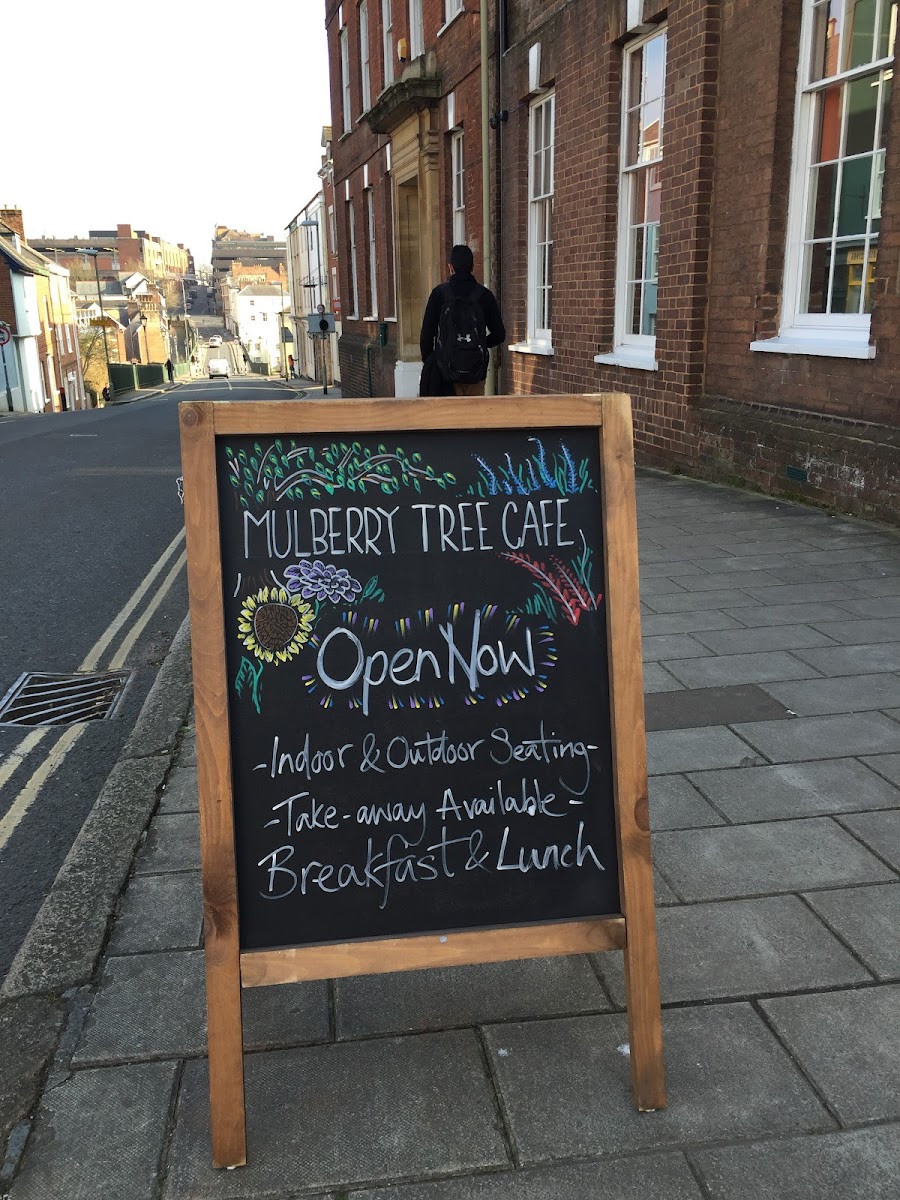 MULBERRY TREE CAFE
Open Now
-Indoor & Outdoor Seating-
-Take-away Available-
Breakfast & Lunch